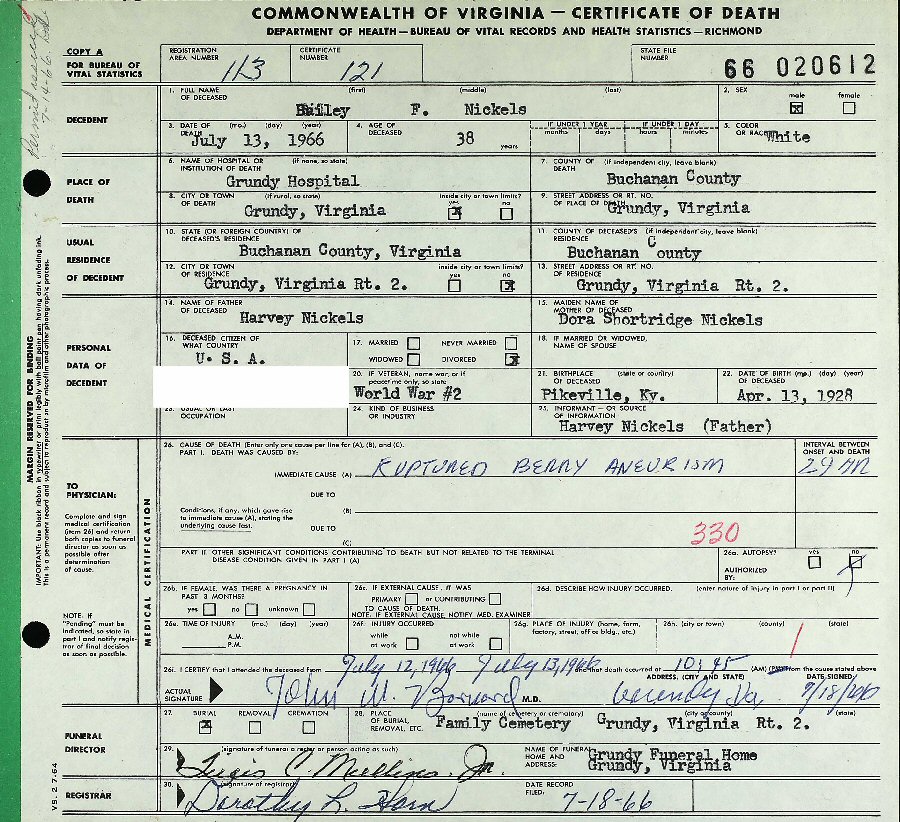 COMMONWEALTH OF VIRGINIA — CERTIFICATE OF DEATH
DEPARTMENT OF HEALTH — BUREAU OF VITAL RECORDS AND HEALTH STATISTICS — RICHMOND
COPY A
FOR BUREAU OF VITAL STATISTICS
REGISTRATION AREA NUMBER 113
CERTIFICATE NUMBER 121
STATE FILE NUMBER 66 020612
DECEDENT
1. FULL NAME OF DECEASED (first) (middle) (last)
Bailey F. Nickels
2. SEX male female
3. DATE OF DEATH (mo.) (day) (year)
July 13, 1966
4. AGE OF DECEASED 38 years
IF UNDER 1 YEAR months days
IF UNDER 1 DAY hours minutes
5. COLOR OR RACE White
PLACE OF DEATH
6. NAME OF HOSPITAL OR INSTITUTION OF DEATH (if none, so state)
Grundy Hospital
7. COUNTY OF DEATH (if independent city, leave blank)
Buchanan County
8. CITY OR TOWN OF DEATH (if rural, so state)
Grundy, Virginia
inside city or town limits? yes no
9. STREET ADDRESS OR RT. NO. OF PLACE OF DEATH
Grundy, Virginia
USUAL RESIDENCE OF DECEDENT
10. STATE (OR FOREIGN COUNTRY) OF DECEASED'S RESIDENCE
Buchanan County, Virginia
11. COUNTY OF DECEASED'S RESIDENCE (if independent city, leave blank)
Buchanan County
12. CITY OR TOWN OF RESIDENCE
Grundy, Virginia Rt. 2.
inside city or town limits? yes no
13. STREET ADDRESS OR RT. NO. OF RESIDENCE
Grundy, Virginia Rt. 2.
PERSONAL DATA OF DECEDENT
14. NAME OF FATHER OF DECEASED
Harvey Nickels
15. MAIDEN NAME OF MOTHER OF DECEASED
Dora Shortridge Nickels
16. DECEASED CITIZEN OF WHAT COUNTRY
U. S. A.
17. MARRIED NEVER MARRIED
WIDOWED DIVORCED
18. IF MARRIED OR WIDOWED, NAME OF SPOUSE
20. IF VETERAN, name war, or if peace time only, so state
World War #2
21. BIRTHPLACE OF DECEASED (state or country)
Pikeville, Ky.
22. DATE OF BIRTH (mo.) (day) (year) OF DECEASED
Apr. 13, 1928
23. USUAL OR LAST OCCUPATION
24. KIND OF BUSINESS OR INDUSTRY
25. INFORMANT — OR SOURCE OF INFORMATION
Harvey Nickels (Father)
MARGIN RESERVED FOR BINDING
IMPORTANT: Use black ribbon in typewriter or print legibly with ball point pen having dark unfading ink.
This is a permanent record and subject to reproduction by microfilm and other photographic process.
TO PHYSICIAN:
Complete and sign medical certification (item 26) and return both copies to funeral director as soon as possible after determination of cause.
NOTE. IF "Pending" must be indicated, so state in part I and notify registrar of final decision as soon as possible.
MEDICAL CERTIFICATION
26. CAUSE OF DEATH (Enter only one cause per line for (A), (B), and (C).
PART I. DEATH WAS CAUSED BY:
INTERVAL BETWEEN ONSET AND DEATH
IMMEDIATE CAUSE (A) RUPTURED BERRY ANEURISM
DUE TO
Conditions, if any, which gave rise to immediate cause (A), stating the underlying cause last.
(B)
DUE TO
(C)
330
PART II. OTHER SIGNIFICANT CONDITIONS CONTRIBUTING TO DEATH BUT NOT RELATED TO THE TERMINAL DISEASE CONDITION GIVEN IN PART I (A)
26a. AUTOPSY? yes no
AUTHORIZED BY:
26b. IF FEMALE, WAS THERE A PREGNANCY IN PAST 3 MONTHS?
yes no unknown
26c. IF EXTERNAL CAUSE, IT WAS
PRIMARY or CONTRIBUTING
TO CAUSE OF DEATH.
NOTE: IF EXTERNAL CAUSE, NOTIFY MED. EXAMINER
26d. DESCRIBE HOW INJURY OCCURRED. (enter nature of injury in part I or part II)
26e. TIME OF INJURY (mo.) (day) (year)
A.M.
P.M.
26f. INJURY OCCURRED
while at work not while at work
26g. PLACE OF INJURY (home, farm, factory, street, office bldg., etc.)
26h. (city or town) (county) (state)
26i. I CERTIFY that I attended the deceased from July 12, 1966 July 13, 1966 and that death occurred at 10:45 (AM) from the cause stated above
ACTUAL SIGNATURE John M. M.D.
ADDRESS, (CITY AND STATE) Grundy Va
DATE SIGNED
FUNERAL DIRECTOR
27. BURIAL REMOVAL CREMATION
28. PLACE OF BURIAL, REMOVAL, ETC. (name of cemetery or crematory) (city or county) (state)
Family Cemetery Grundy, Virginia Rt. 2.
29. (signature of funeral director or person acting as such)
C. Mullins Jr.
NAME OF FUNERAL HOME AND ADDRESS:
Grundy Funeral Home
Grundy, Virginia
REGISTRAR
30. (signature of registrar)
Dorothy L. Horn
DATE RECORD FILED: 7-18-66
VS. 2 7-64